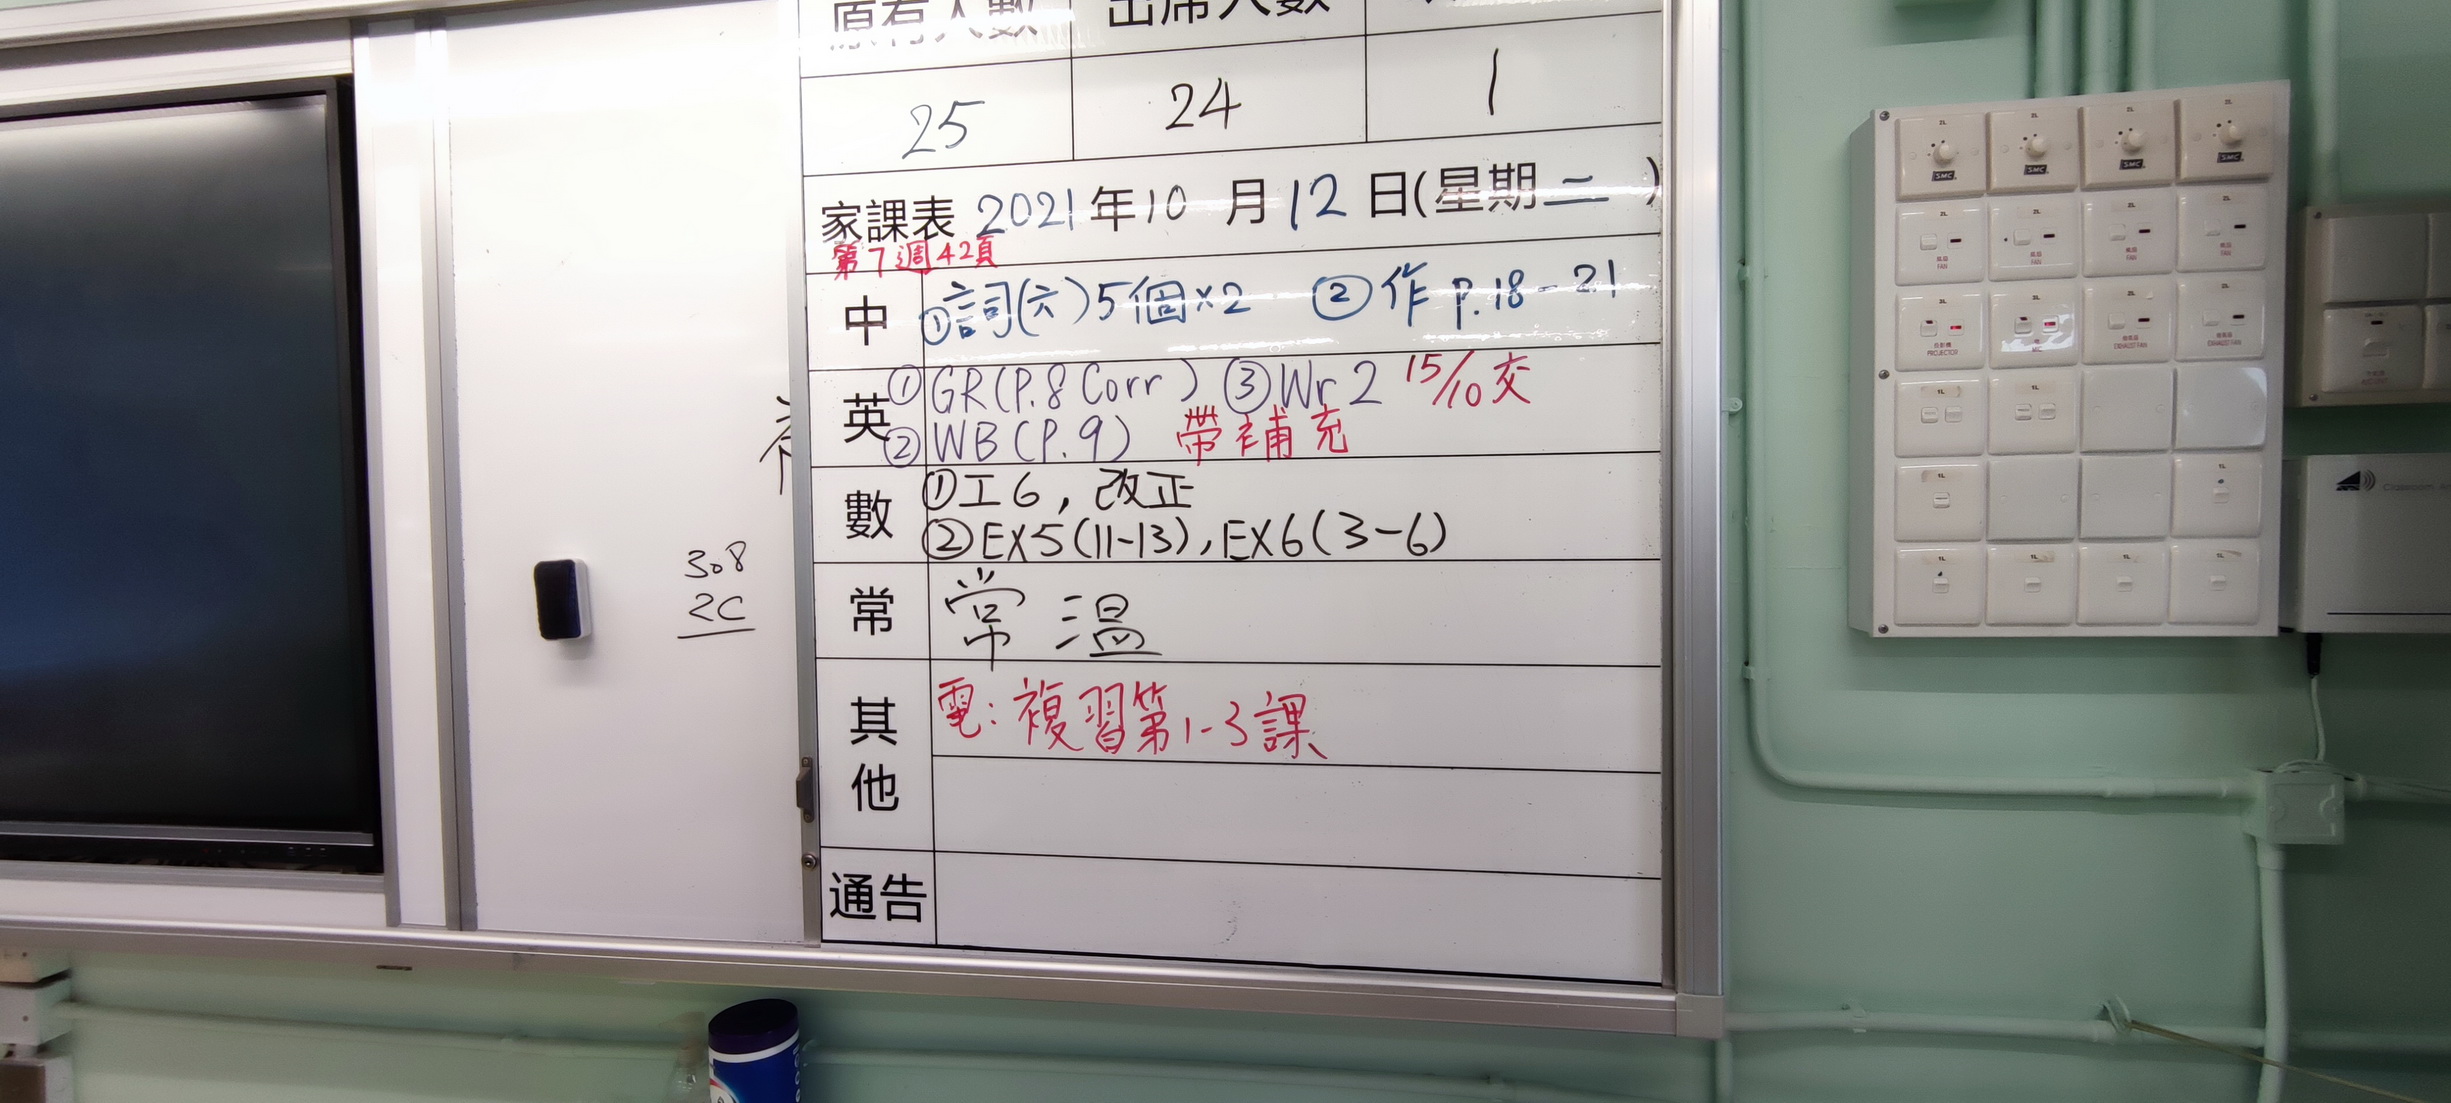 原有人數 出席人數
25 24 1
家課表 2021年10月12日(星期二)
第7週42頁
中 ①詞(六)5個×2 ②作 p.18-21
英 ①GR(P.8 Corr) ③Wr 2 15/10交
②WB(P.9) 帶補充
數 ①工6,改正
②EX5(11-13),EX6(3-6)
常 常 溫
其他 電:複習第1-3課
通告
308
2C
SMC SMC SMC SMC
FAN FAN FAN FAN
PROJECTOR MIC EXHAUST FAN EXHAUST FAN